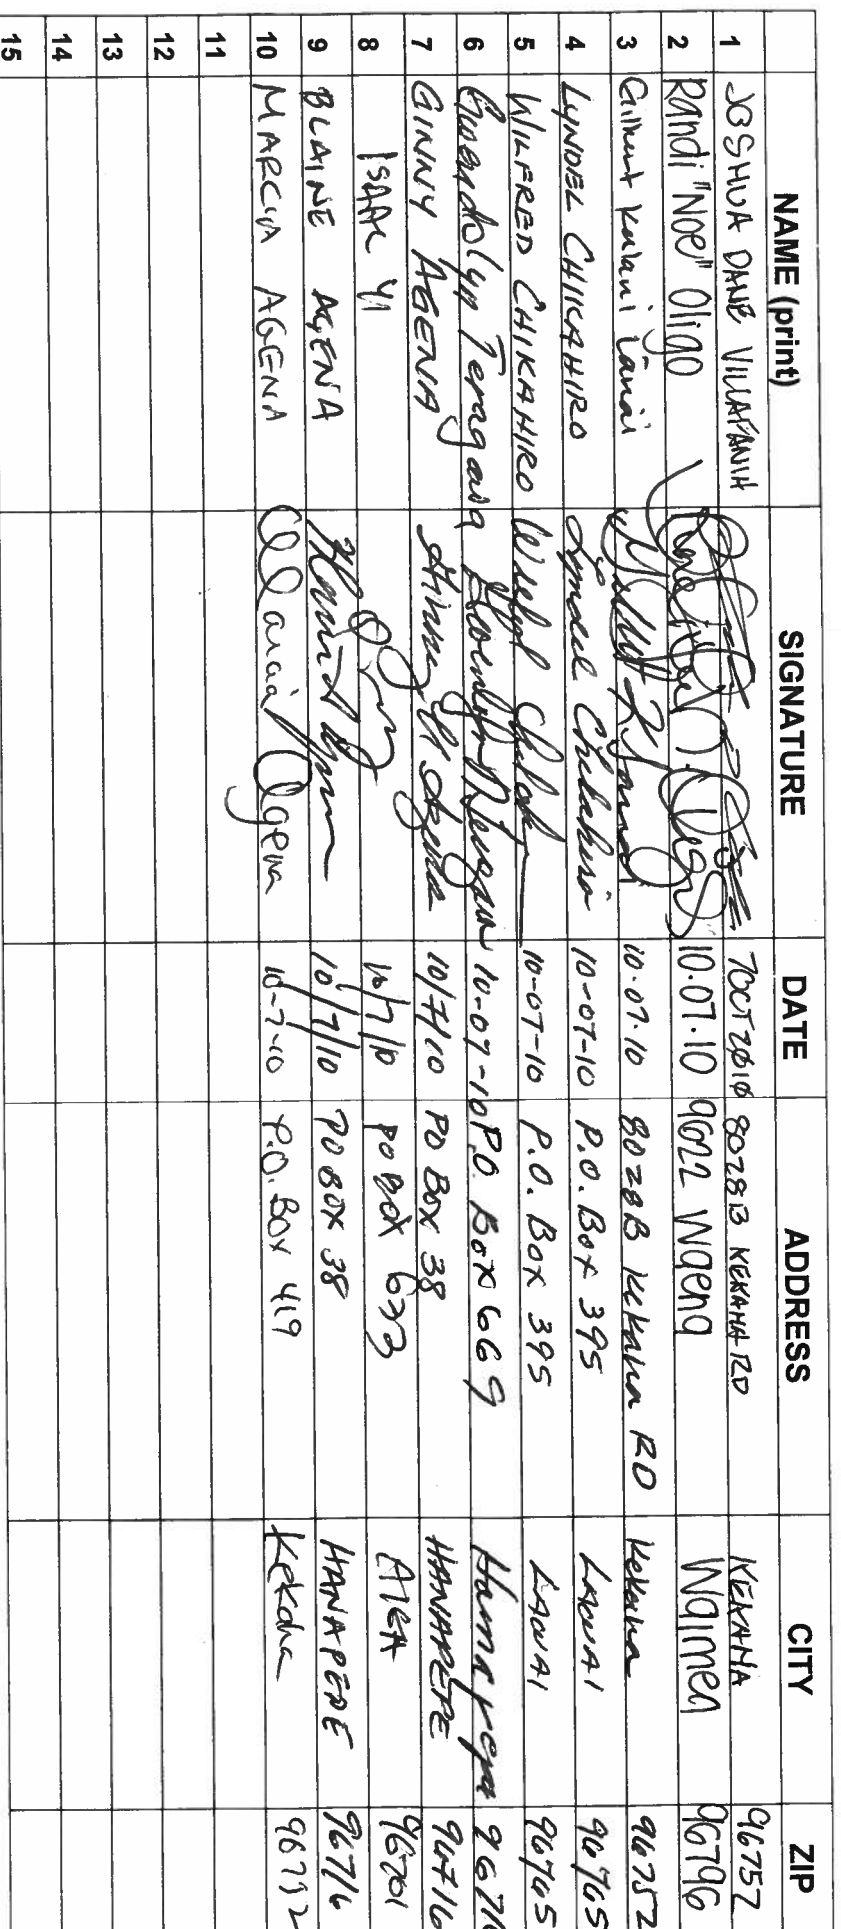 NAME (print) SIGNATURE DATE ADDRESS CITY ZIP
1 JOSHUA DANE VILLAFANIA 7 OCT 2010 8028B KEKAHA RD KEKAHA 96752
2 Randi "Noe" Oligo 10.07.10 9622 Waena Waimea 96796
3 Kalani Lanai 10.07.10 8028B Kekaha RD Kekaha 96752
4 LYNDEL CHIKAHIRO Lyndel Chikahiro 10-07-10 P.O. Box 395 LAWAI 96765
5 WILFRED CHIKAHIRO 10-07-10 P.O. Box 395 LAWAI 96765
6 Gwendolyn Teragawa 10-07-10 P.O. Box 669 Hanapepe
7 GINNY AGENA Ginny Agena 10/7/10 PO Box 38 HANAPEPE 96716
8 ISAAC YI 10/7/10 PO BOX 633 AIEA 96701
9 BLAINE AGENA 10/7/10 PO BOX 38 HANAPEPE 96716
10 MARCIA AGENA Marcia Agena 10-7-10 P.O. Box 419 Kekaha 96752
11
12
13
14
15